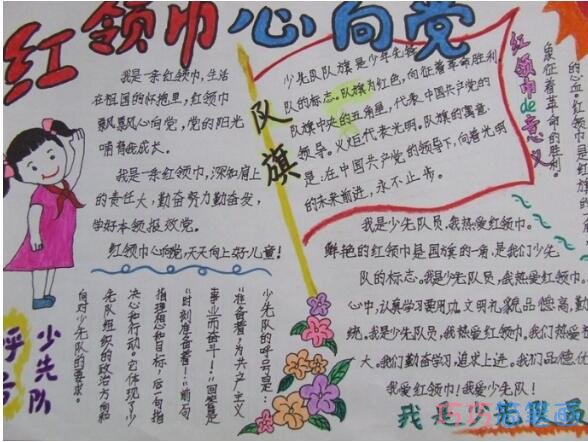 红领巾心向党
我是一条红领巾,生活
在祖国的怀抱里,红领巾
飘飘心向党,党的阳光
哺育我成长。
我是一条红领巾,深知肩上
的责任大,勤奋努力勤奋发,
学好本领报效党。
红领巾心向党,天天向上好儿童!
队旗
少先队队旗是少年先锋
队的标志。队旗为红色,向征着革命胜利.
队旗中央的五角星,代表中国共产党的
领导。火炬代表光明。队旗的寓意
是:在中国共产党的领导下,向着光明
的未来前进,永不止步。
红领巾de意义
的
象征着革命的胜利。
我是少先队员,我热爱红领巾。
鲜艳的红领巾是国旗的一角,是我们少先
队的标志。我是少先队员,我热爱红领巾
心中,认真学习要用功。文明礼貌品德高,勤
统。我是少先队员,我热爱红领巾。我们热爱
大。我们勤奋学习,追求上进。我们品德优
我爱红领巾!我爱少先队!
少先队的呼号是:
“准备着,为共产主义
事业而奋斗!”回答是
“时刻准备着!”前句
指理想和目标,后一句指
决心和行动。它体现了少
先队组织的政治方向和
向对少先队的要求。
少先队
呼号
我是